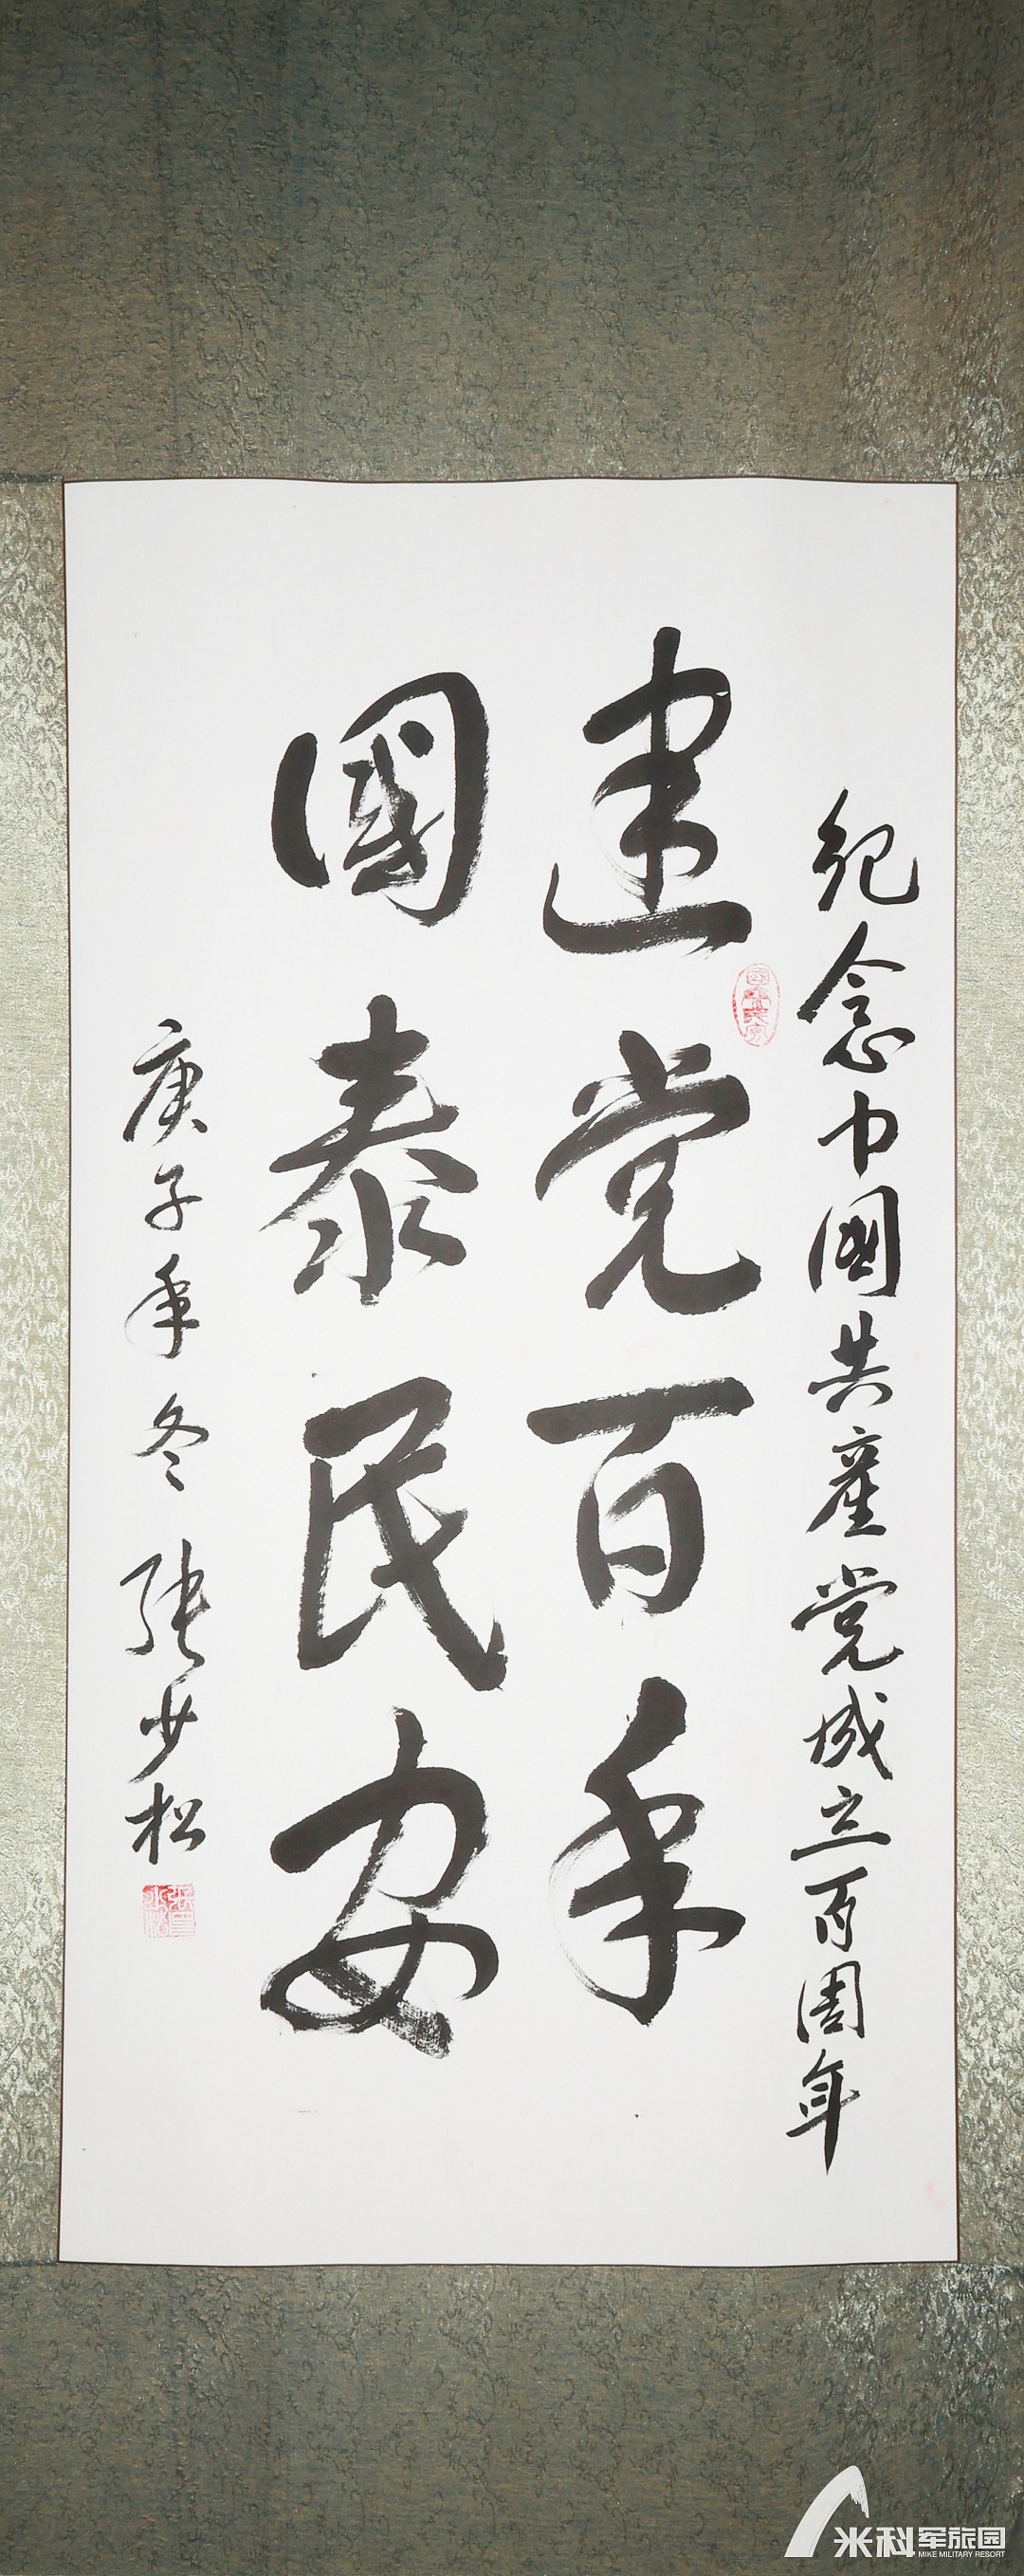 纪念中國共產党成立百周年
建党百年
國泰民安
庚子年冬 张少松
米科军旅园
MIKE MILITARY RESORT